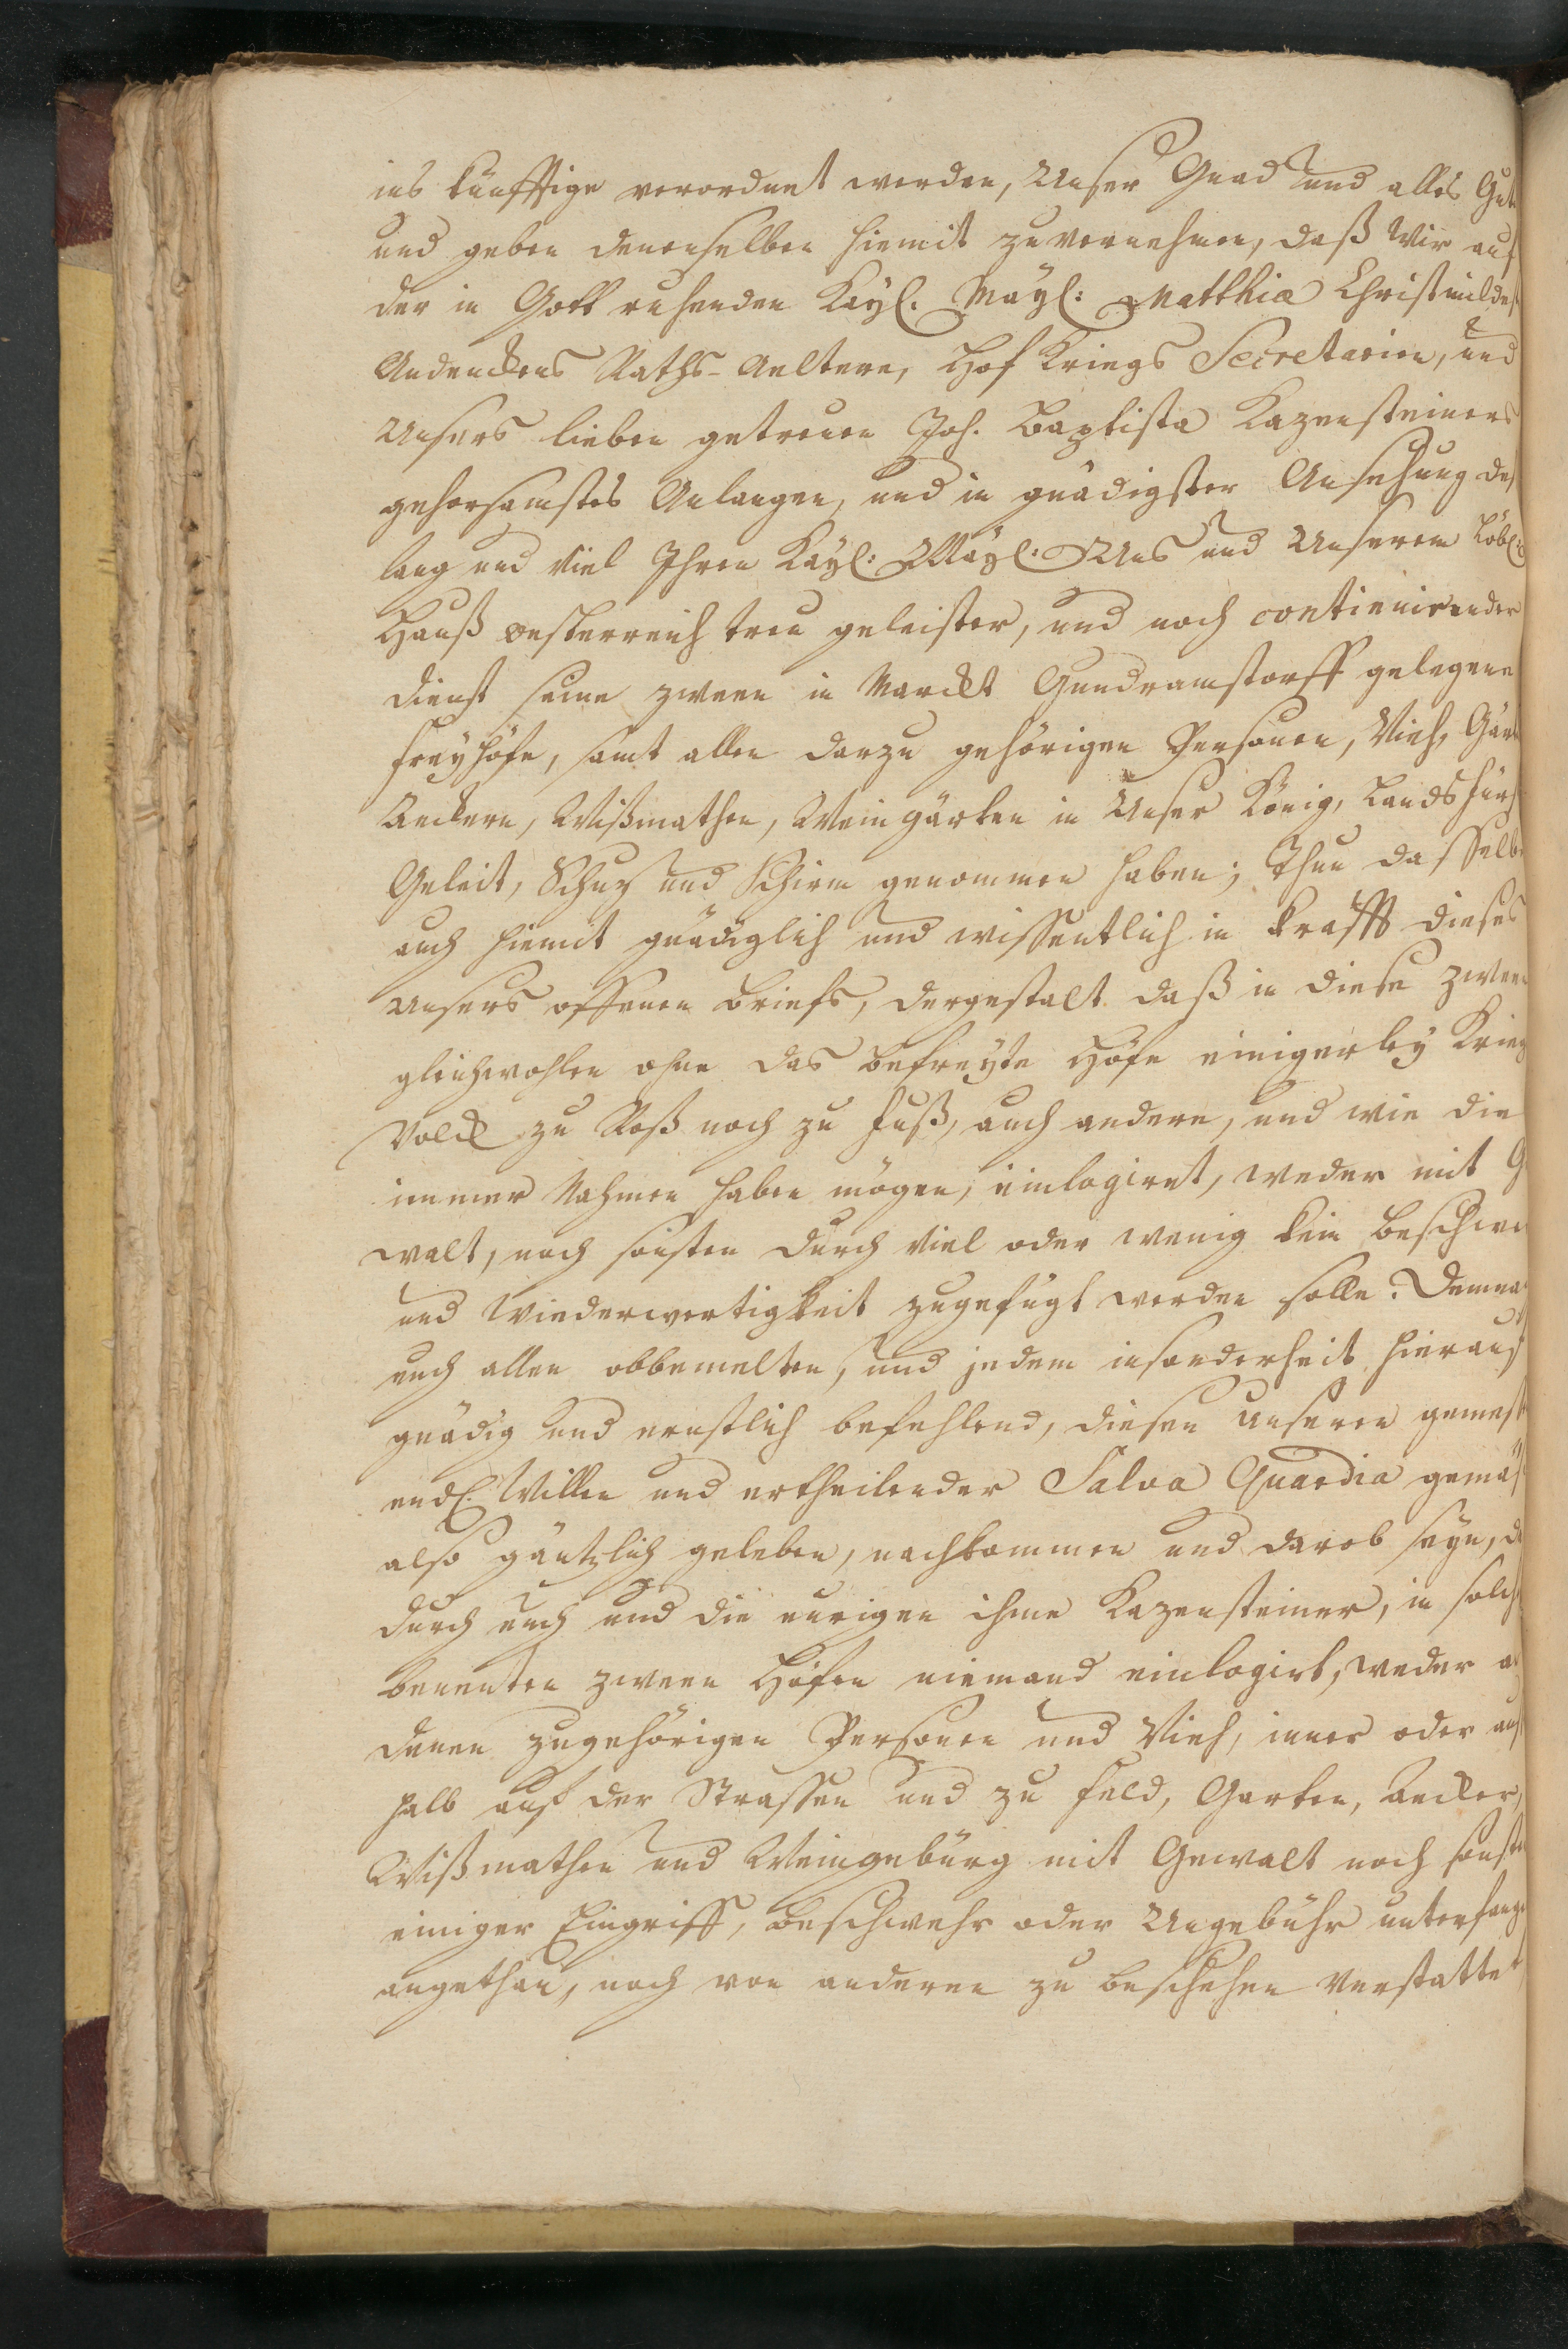 ins künfftige verordnet werden, Unser Gnad und alles Gut
und geben denenselben hiemit zuvernehmen, daß Wir auf
der in Gott ruhenden Kayl. Mayl: Matthiæ Christmildest
Andenckens Raths-Aeltern, Hof Kriegs Secretarien, und
Unsers lieben getreuen Joh. Baptista Kazensteiners
gehorsamstes Anlangen, und in gnädigster Ansehung des
lang und viel Ihren Kayl: Mayl. Uns und Unserem Löbl:
Hauß oesterreich treu geleister, und noch continuirender
dienst seine zween in Marckt Gundramstorff gelegene
freyhöfe, samt allen darzu gehörigen Personen, Vieh, Gärt
Aeckern, Wißmathen, Weingärten in Unser König, Landsfürs
Geleit, Schuz und Schirm genommen haben; Thun dasselbe
auch hiemit gnädiglich und wissentlich in krafft dieses
Unsers offenen Briefs, dergestalt daß in diese zween
gleichwohlen ohne das befreyte Höfe einigerley Krieg
Volck zu Roß noch zu fuß, auch andere, und wie die
immer Nahmen haben mögen, einlogirt, weder mit G
walt, noch sonsten durch viel oder wenig kein beschwe
und Wiederwertigkeit zugefügt werden solle. Demna
euch allen obbemelten, und jedem insonderheit hierauf
gnädig und ernstlich befehlend, diesen unseren gemest
endl. Willen und ertheilender Salva Guardia gemäs
also gäntzlich geleben, nachkommen und darob seyn, d
durch euch und die eurigen ihme Kazensteiner, in solch
benenten zween Höfen niemand einlogirt, weder a
denen zugehörigen Personen und Vieh, inner oder aus
halb auf der Strassen und zu feld, Garten, Aecker,
Wißmathen und Weingebürg mit Gewalt noch sonsten
einiger Eingriff, beschwehr oder Ungebühr unterfange
angethan, noch von anderen zu beschehen verstattet